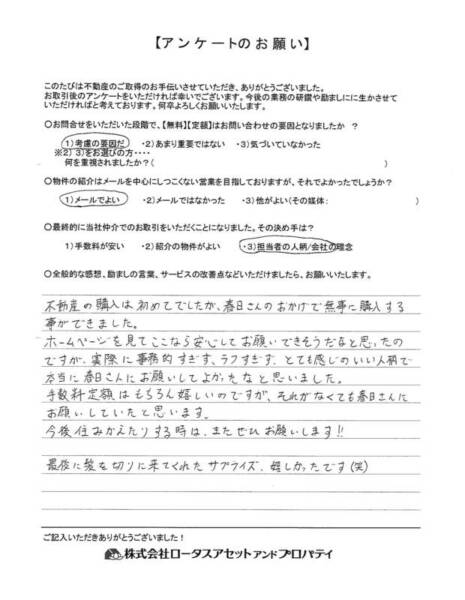 【アンケートのお願い】
このたびは不動産のご取得のお手伝いさせていただき、ありがとうございました。
お取引後のアンケートをいただければ幸いでございます。今後の業務の研鑽や励ましにに生かさせて
いただければと考えております。何卒よろしくお願いいたします。
○お問合せをいただいた段階で、【無料】【定額】はお問い合わせの要因となりましたか ？
1)考慮の要因だ ・2)あまり重要ではない ・3)気づいていなかった
※2) 3)をお選びの方・・・・
何を重視されましたか？( )
○物件の紹介はメールを中心にしつこくない営業を目指しておりますが、それでよかったでしょうか？
1)メールでよい ・2)メールではなかった ・3)他がよい(その媒体: )
○最終的に当社仲介でのお取引をいただくことになりました。その決め手は？
1)手数料が安い ・2)紹介の物件がよい ・3)担当者の人柄/会社の理念
○全般的な感想、励ましの言葉、サービスの改善点などいただけましたら、お願いいたします。
不動産の購入は初めてでしたが、春日さんのおかげで無事に購入する
事ができました。
ホームページを見てここなら安心してお願いできそうだなと思ったの
ですが、実際に事務的すぎず、ラフすぎず、とても感じのいい人柄で
本当に春日さんにお願いしてよかったなと思いました。
手数料定額はもちろん嬉しいのですが、それがなくても春日さんに
お願いしていたと思います。
今後住みかえたりする時は、またぜひお願いします!!
最後に髪を切りに来てくれたサプライズ、嬉しかったです(笑)
ご記入いただきありがとうございました！
株式会社ロータスアセットアンドプロパティ